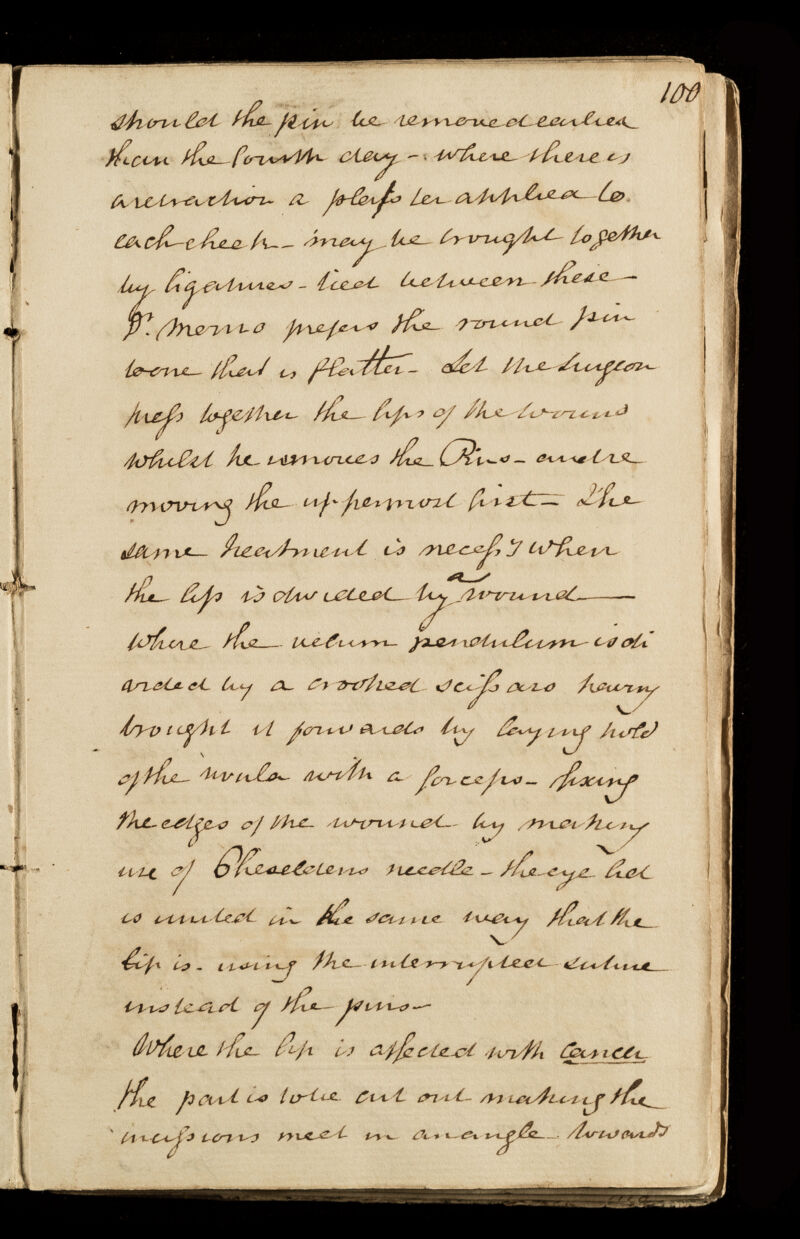 100
should the pin be removed earlier
than the fourth day - where there is
a retraction a plaſster applied to
each cheek - may be brought together
by ligatures - tied between these
Dr. Monro prefers the round pin
to one that is flatter - Let the Surgeon
preſs together the lips of the wound
whilst he removes the Pins - and re
moving the uppermost first - The
same treatment is neceſsy when
the lip is divided by a wound
Where the velum pendulum is di
vided by a crooked sciſsars having
brought it forwards by laying hold
of the uvula with a forceps - fixing
the edges of the wound by making
use of Cheseldens needle - the eye lid
is united in the same way that the
lip is - using the interrupted suture
instead of the pins -
Where the lip is affected with cancer
the part is to be cut out making the
inciſsions meet in an angle towards